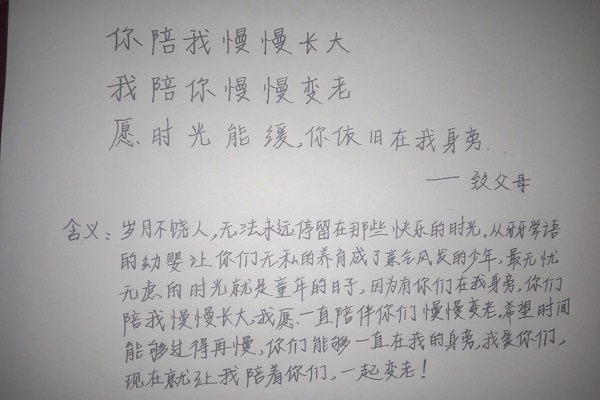 你陪我慢慢长大
我陪你慢慢变老
愿时光能缓,你依旧在我身旁.
——致父母
含义:岁月不饶人,无法永远停留在那些快乐的时光,从牙牙学语
的幼婴让你们无私的养育成了意气风发的少年,最无忧
无虑的时光就是童年的日子,因为有你们在我身旁,你们
陪我慢慢长大,我愿一直陪伴你们慢慢变老,希望时间
能够过得再慢,你们能够一直在我的身旁,我爱你们,
现在就让我陪着你们,一起变老!